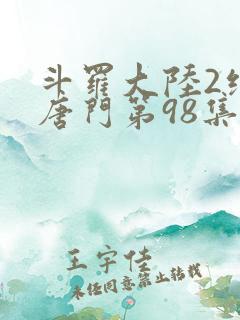 斗羅大陸2絕
唐門第98集
王宇佳
未经同意禁止转载